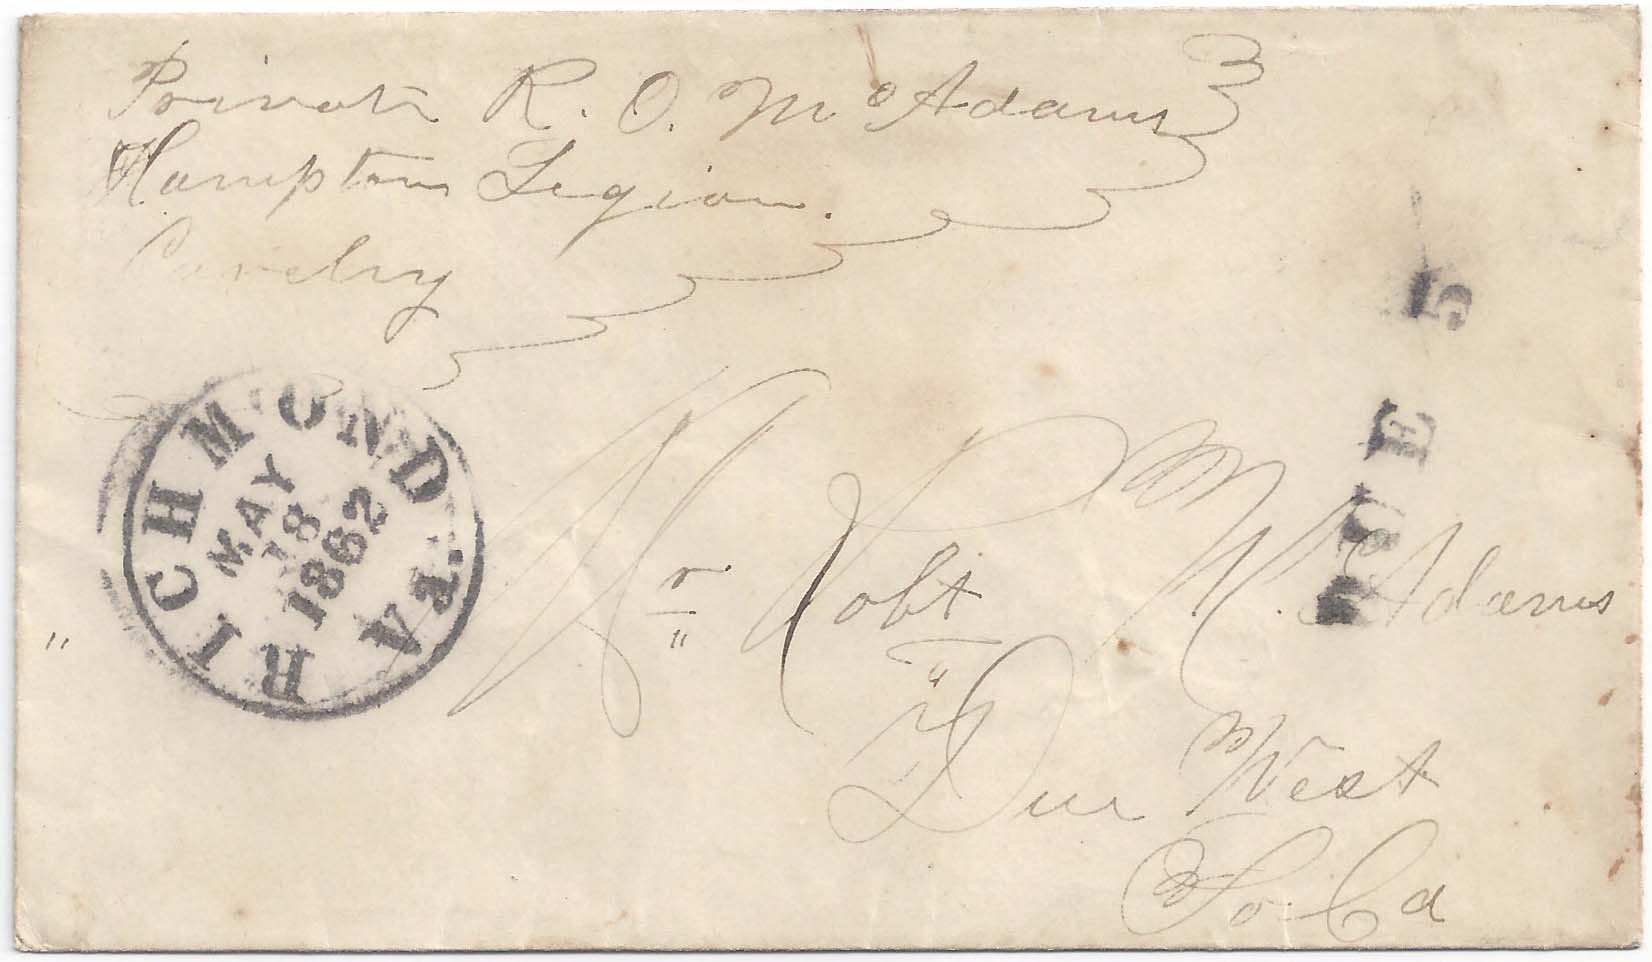 Private R. O. McAdams
Hampton Legion.
Cavelry
RICHMOND Va.
MAY
18
1862
DUE 5
Mr Robt McAdams
Due West
So Ca